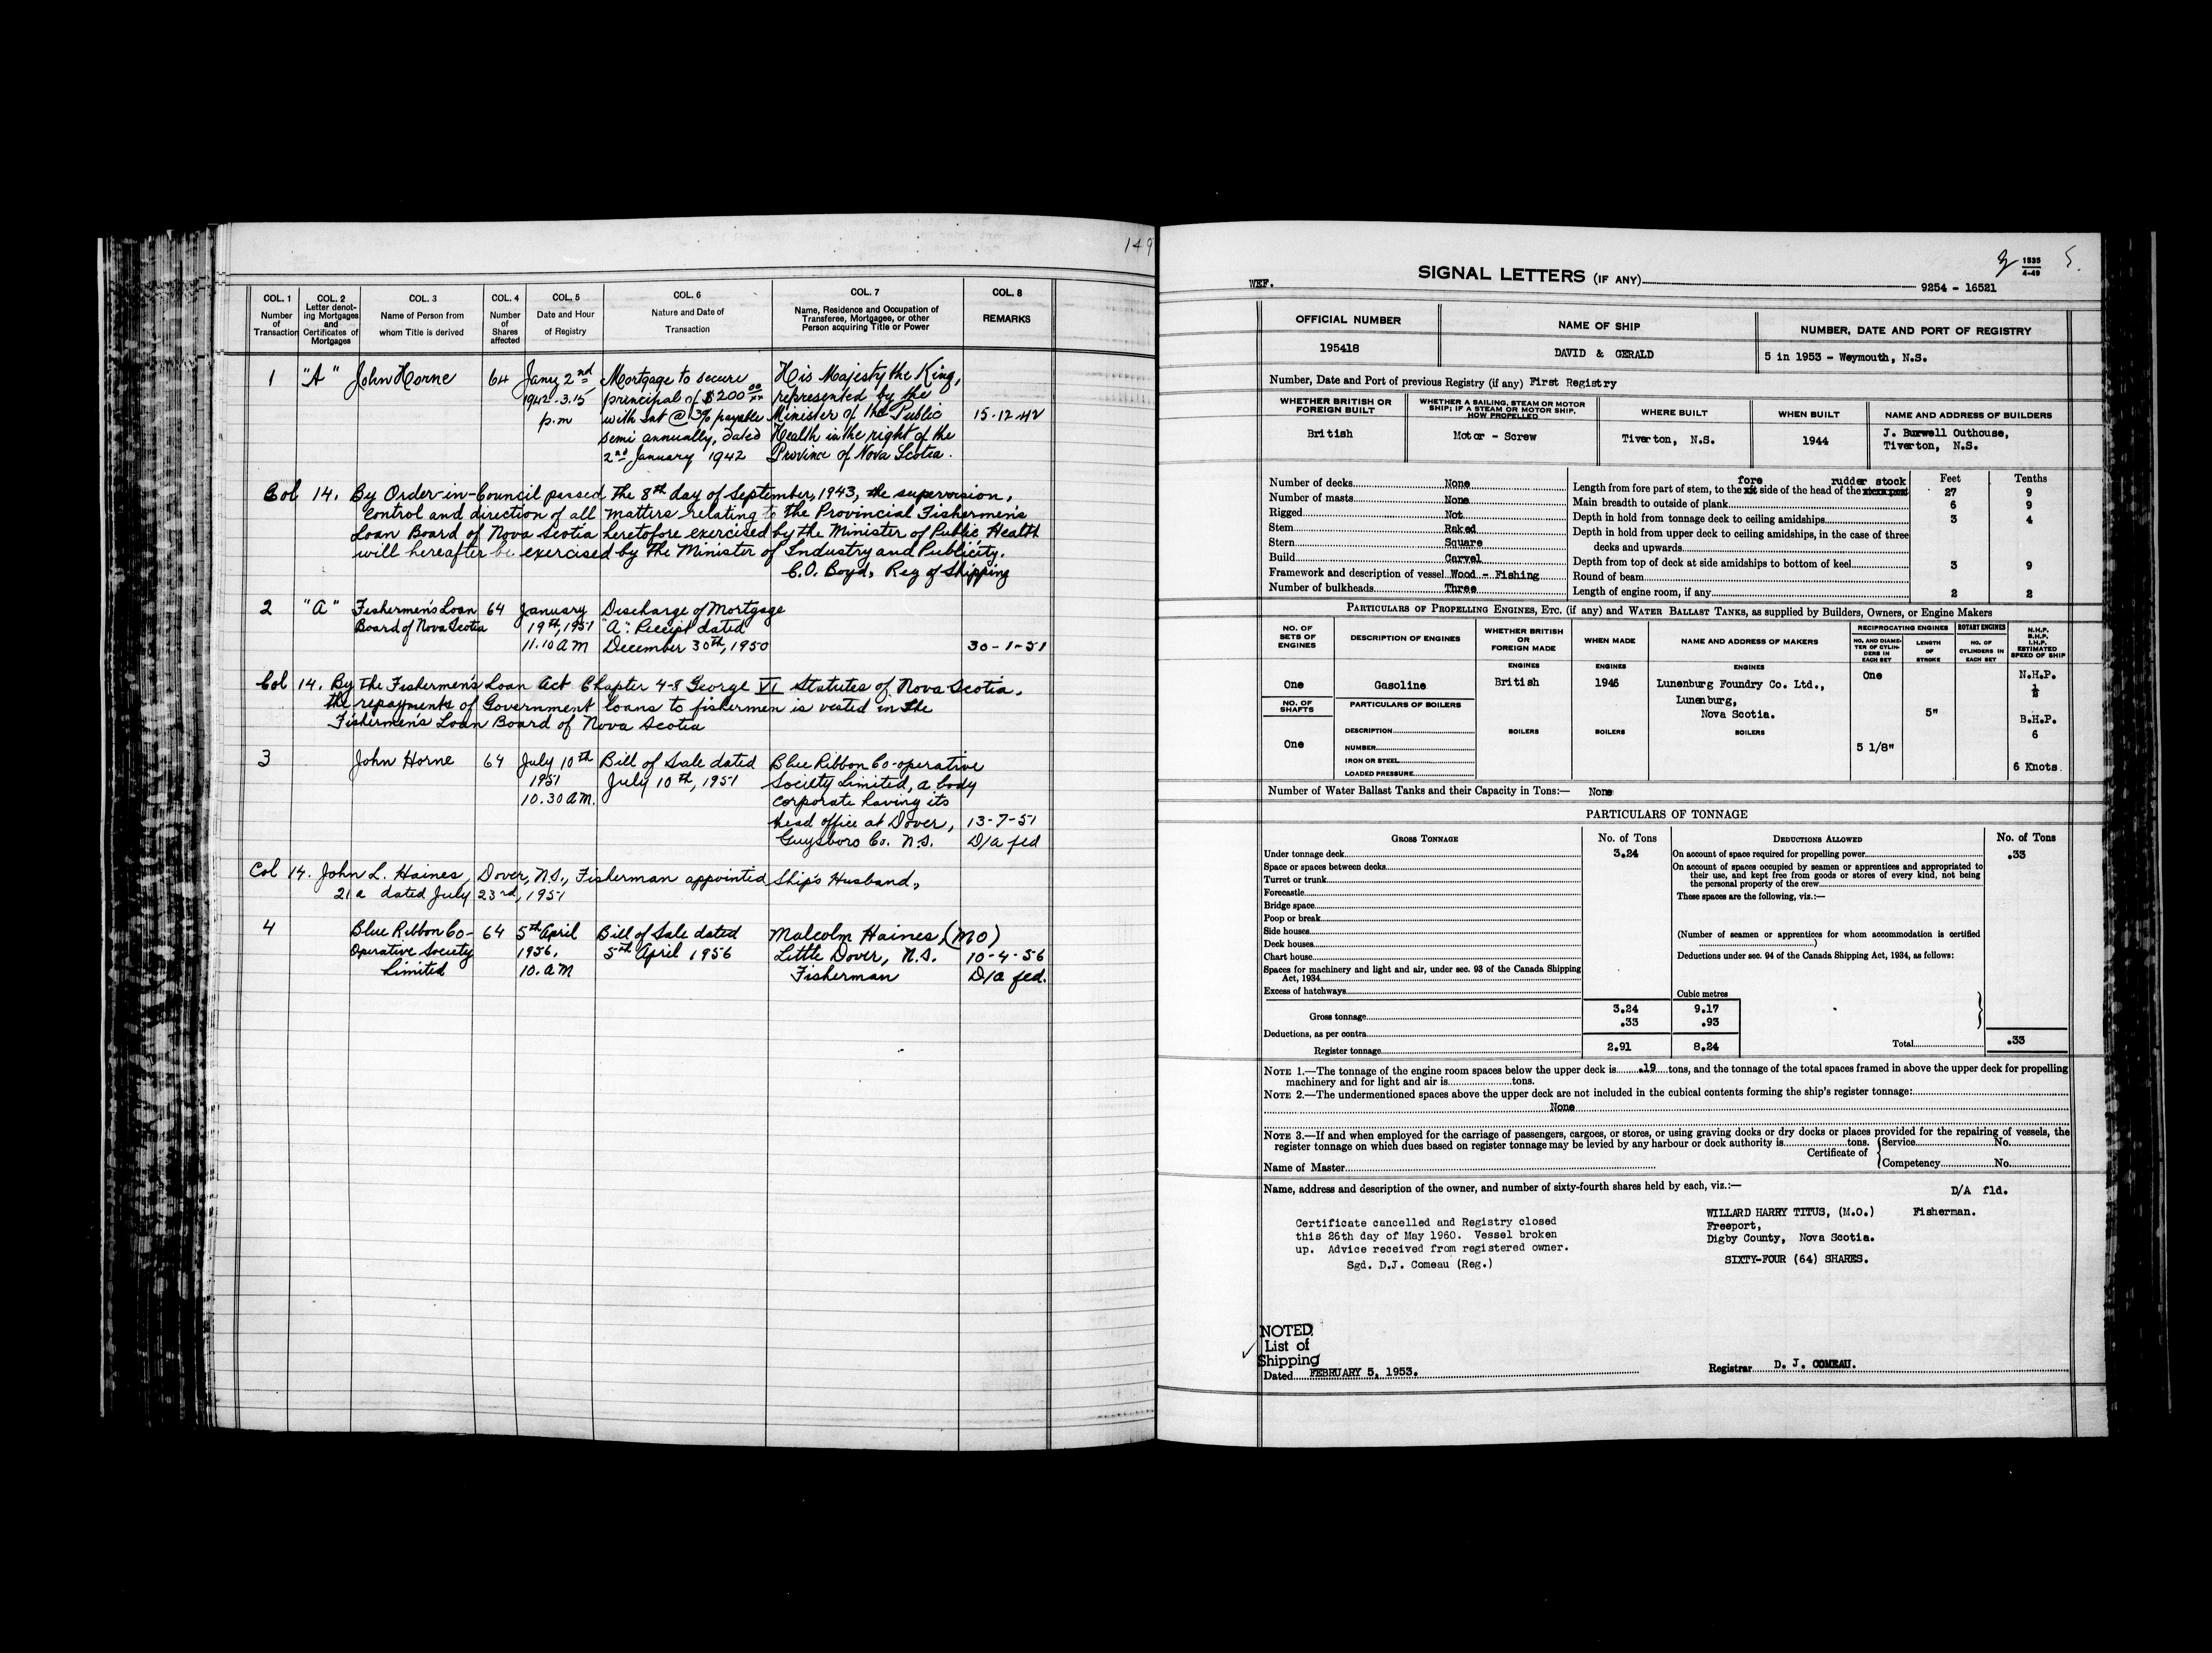 149
COL. 1 COL. 2 COL. 3 COL. 4 COL. 5 COL. 6 COL. 7 COL. 8
Number of Transaction
Letter denoting Mortgages and Certificates of Mortgages
Name of Person from whom Title is derived
Number of Shares affected
Date and Hour of Registry
Nature and Date of Transaction
Name, Residence and Occupation of Transferee, Mortgagee, or other Person acquiring Title or Power
REMARKS
1 "A" John Horne 64 Jany 2nd Mortgage to secure His Majesty the King,
1942 - 3.15 principal of $200 00/xx represented by the
p.m with Int @ 3% payable Minister of the Public 15-12-42
semi annually, dated Health in the right of the
2nd January 1942 Province of Nova Scotia.
Col 14. By Order-in-Council passed the 8th day of September, 1943, the supervision,
control and direction of all matters relating to the Provincial Fishermen's
Loan Board of Nova Scotia heretofore exercised by the Minister of Public Health
will hereafter be exercised by the Minister of Industry and Publicity.
C.O. Boyd, Reg of Shipping
2 "A" Fishermen's Loan 64 January Discharge of Mortgage
Board of Nova Scotia 19th, 1951 "A". Receipt dated
11.10 AM December 30th, 1950 30-1-51
Col 14. By the Fishermen's Loan Act Chapter 4-8 George VI Statutes of Nova Scotia,
the repayments of Government loans to fishermen is vested in the
Fishermen's Loan Board of Nova Scotia
3 John Horne 64 July 10th Bill of Sale dated Blue Ribbon Co-operative
1951 July 10th, 1951 Society Limited, a body
10.30 AM. corporate having its
head office at Dover, 13-7-51
Guysboro Co. N.S. D/a fed
Col 14. John L. Haines, Dover, N.S., Fisherman appointed Ship's Husband,
21a dated July 23rd, 1951
4 Blue Ribbon Co- 64 5th April Bill of Sale dated Malcolm Haines, (MO)
Operative Society 1956. 5th April 1956 Little Dover, N.S. 10-4-56
Limited 10. AM Fisherman D/a fed.
WEF.
SIGNAL LETTERS (IF ANY)
1535
4-49
9254 - 16521
5.
OFFICIAL NUMBER NAME OF SHIP NUMBER, DATE AND PORT OF REGISTRY
195418 DAVID & GERALD 5 in 1953 - Weymouth, N.S.
Number, Date and Port of previous Registry (if any) First Registry
WHETHER BRITISH OR FOREIGN BUILT
WHETHER A SAILING, STEAM OR MOTOR SHIP; IF A STEAM OR MOTOR SHIP, HOW PROPELLED
WHERE BUILT WHEN BUILT NAME AND ADDRESS OF BUILDERS
British Motor - Screw Tiverton, N.S. 1944 J. Burwell Outhouse,
Tiverton, N.S.
Number of decks None
Number of masts None
Rigged Not
Stem Raked
Stern Square
Build Carvel
Framework and description of vessel Wood - Fishing
Number of bulkheads Three
Feet Tenths
fore rudder stock
Length from fore part of stem, to the aft side of the head of the stern post 27 9
Main breadth to outside of plank 6 9
Depth in hold from tonnage deck to ceiling amidships 3 4
Depth in hold from upper deck to ceiling amidships, in the case of three
decks and upwards
Depth from top of deck at side amidships to bottom of keel 3 9
Round of beam
Length of engine room, if any 2 2
PARTICULARS OF PROPELLING ENGINES, ETC. (if any) and WATER BALLAST TANKS, as supplied by Builders, Owners, or Engine Makers
NO. OF SETS OF ENGINES
DESCRIPTION OF ENGINES
WHETHER BRITISH OR FOREIGN MADE
WHEN MADE
NAME AND ADDRESS OF MAKERS
RECIPROCATING ENGINES ROTARY ENGINES
NO. AND DIAMETER OF CYLINDERS IN EACH SET
LENGTH OF STROKE
NO. OF CYLINDERS IN EACH SET
N.H.P. B.H.P. I.H.P. ESTIMATED SPEED OF SHIP
ENGINES ENGINES ENGINES
One Gasoline British 1946 Lunenburg Foundry Co. Ltd., One N.H.P.
Lunenburg,
Nova Scotia. 5" B.H.P.
6
NO. OF SHAFTS
PARTICULARS OF BOILERS
DESCRIPTION BOILERS BOILERS BOILERS
One NUMBER 5 1/8"
IRON OR STEEL
LOADED PRESSURE 6 Knots.
Number of Water Ballast Tanks and their Capacity in Tons:— None
PARTICULARS OF TONNAGE
GROSS TONNAGE No. of Tons DEDUCTIONS ALLOWED No. of Tons
Under tonnage deck 3.24
Space or spaces between decks
Turret or trunk
Forecastle
Bridge space
Poop or break
Side houses
Deck houses
Chart house
Spaces for machinery and light and air, under sec. 93 of the Canada Shipping
Act, 1934
Excess of hatchways
Cubic metres
Gross tonnage 3.24 9.17
Deductions, as per contra .33 .93
Register tonnage 2.91 8.24
On account of space required for propelling power .33
On account of spaces occupied by seamen or apprentices and appropriated to
their use, and kept free from goods or stores of every kind, not being
the personal property of the crew
These spaces are the following, viz.:—
(Number of seamen or apprentices for whom accommodation is certified
)
Deductions under sec. 94 of the Canada Shipping Act, 1934, as follows:
Total .33
NOTE 1.—The tonnage of the engine room spaces below the upper deck is .19 tons, and the tonnage of the total spaces framed in above the upper deck for propelling
machinery and for light and air is tons.
NOTE 2.—The undermentioned spaces above the upper deck are not included in the cubical contents forming the ship's register tonnage:
None
NOTE 3.—If and when employed for the carriage of passengers, cargoes, or stores, or using graving docks or dry docks or places provided for the repairing of vessels, the
register tonnage on which dues based on register tonnage may be levied by any harbour or dock authority is tons.
Certificate of
Service No.
Competency No.
Name of Master
Name, address and description of the owner, and number of sixty-fourth shares held by each, viz.:—
D/A fld.
WILLARD HARRY TITUS, (M.O.) Fisherman.
Freeport,
Digby County, Nova Scotia.
SIXTY-FOUR (64) SHARES.
Certificate cancelled and Registry closed
this 26th day of May 1960. Vessel broken
up. Advice received from registered owner.
Sgd. D.J. Comeau (Reg.)
NOTED
List of
Shipping
Dated FEBRUARY 5, 1953.
Registrar D. J. COMEAU.